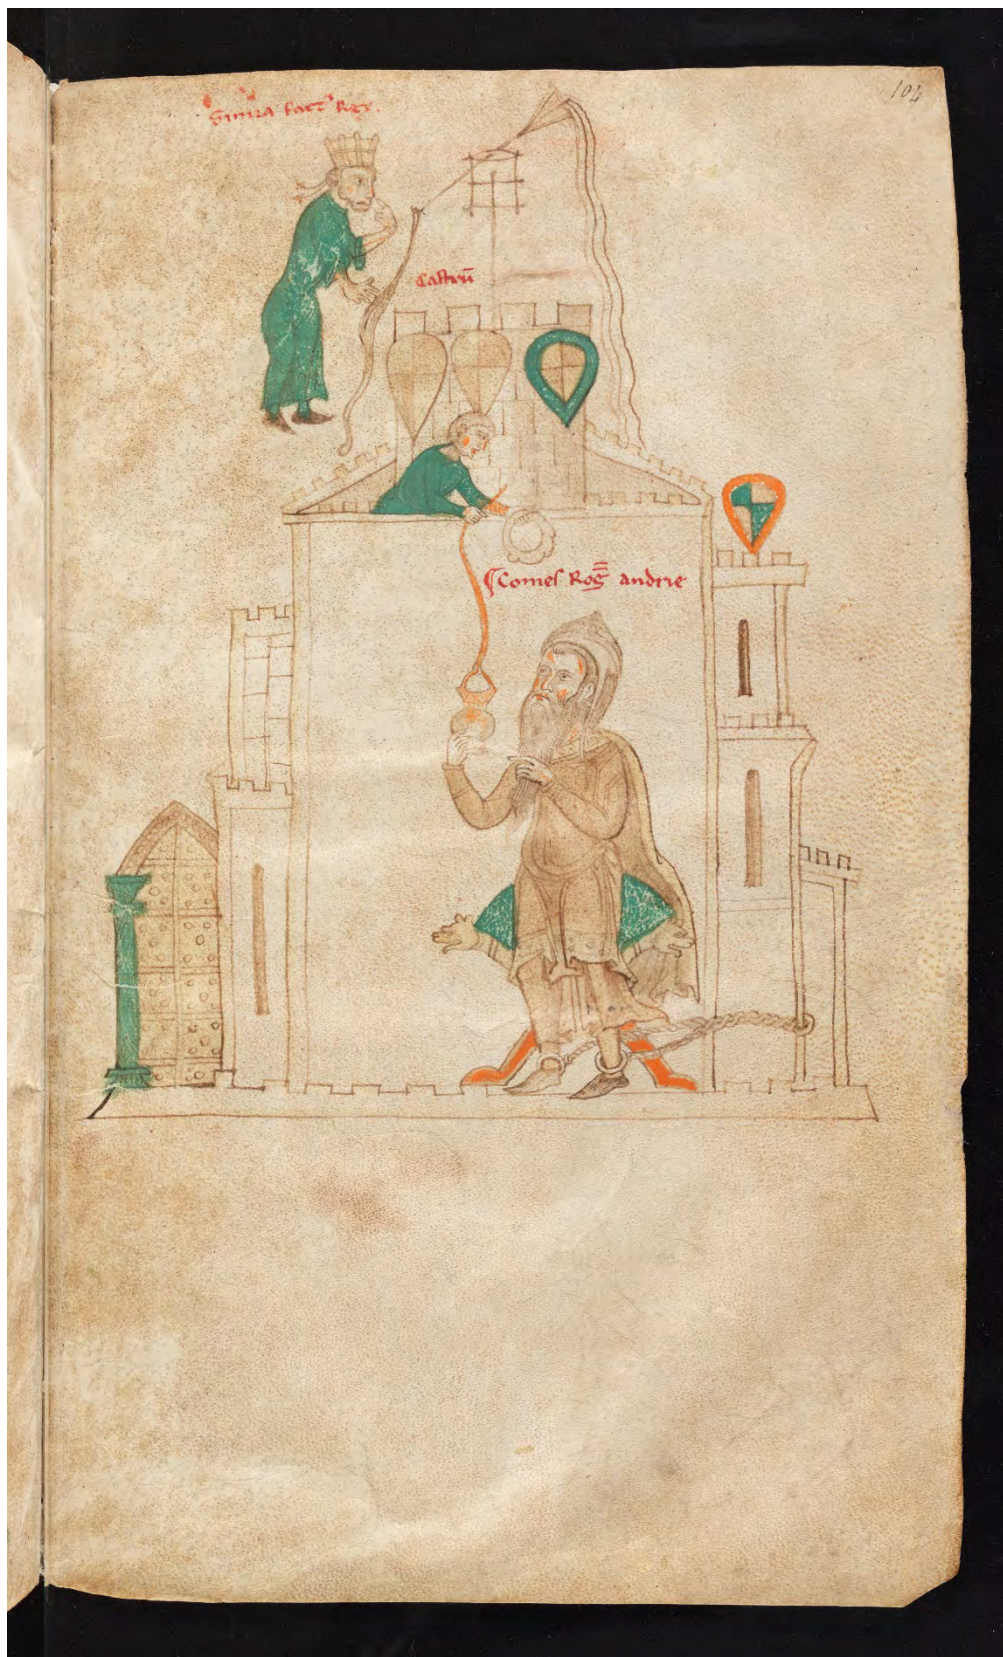 104
Simia factus Rex.
Castrū
Comes Roḡ andrie